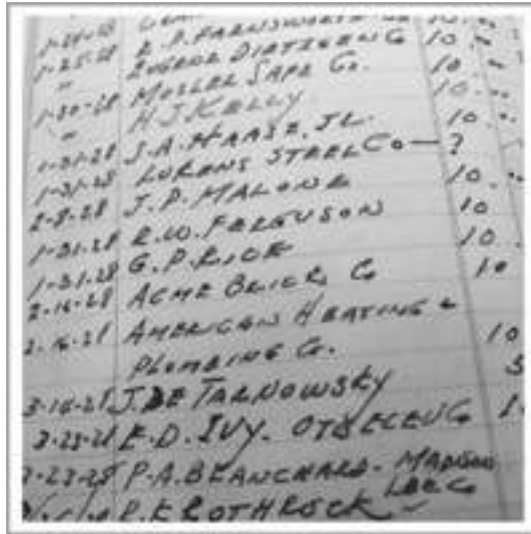 1-25-28 E.P. FARNSWORTH
" EUGENE DIETZGEN Co 10.
1-30-28 MOSLER SAFE Co. 10.
" H.J. KELLY 10.
1-31-28 S.A. HAASE, JR. 10.
1-31-28 LUKENS STEEL Co — ?
2-8-28 J.P. MALONE 10.
1-31-28 R.W. FERGUSON 10
1-31-28 G.P. RICE 10.
2-16-28 ACME BRICK Co 10
2-16-28 AMERICAN HEATING &
PLUMBING Co. 10
3-16-28 J. DE TARNOWSKY 5
3-23-28 E.D. IVY. OTIS ELEV Co
3-23-28 P.A. BLANCHARD - MADISON
LBR Co
P.K ROTHROCK